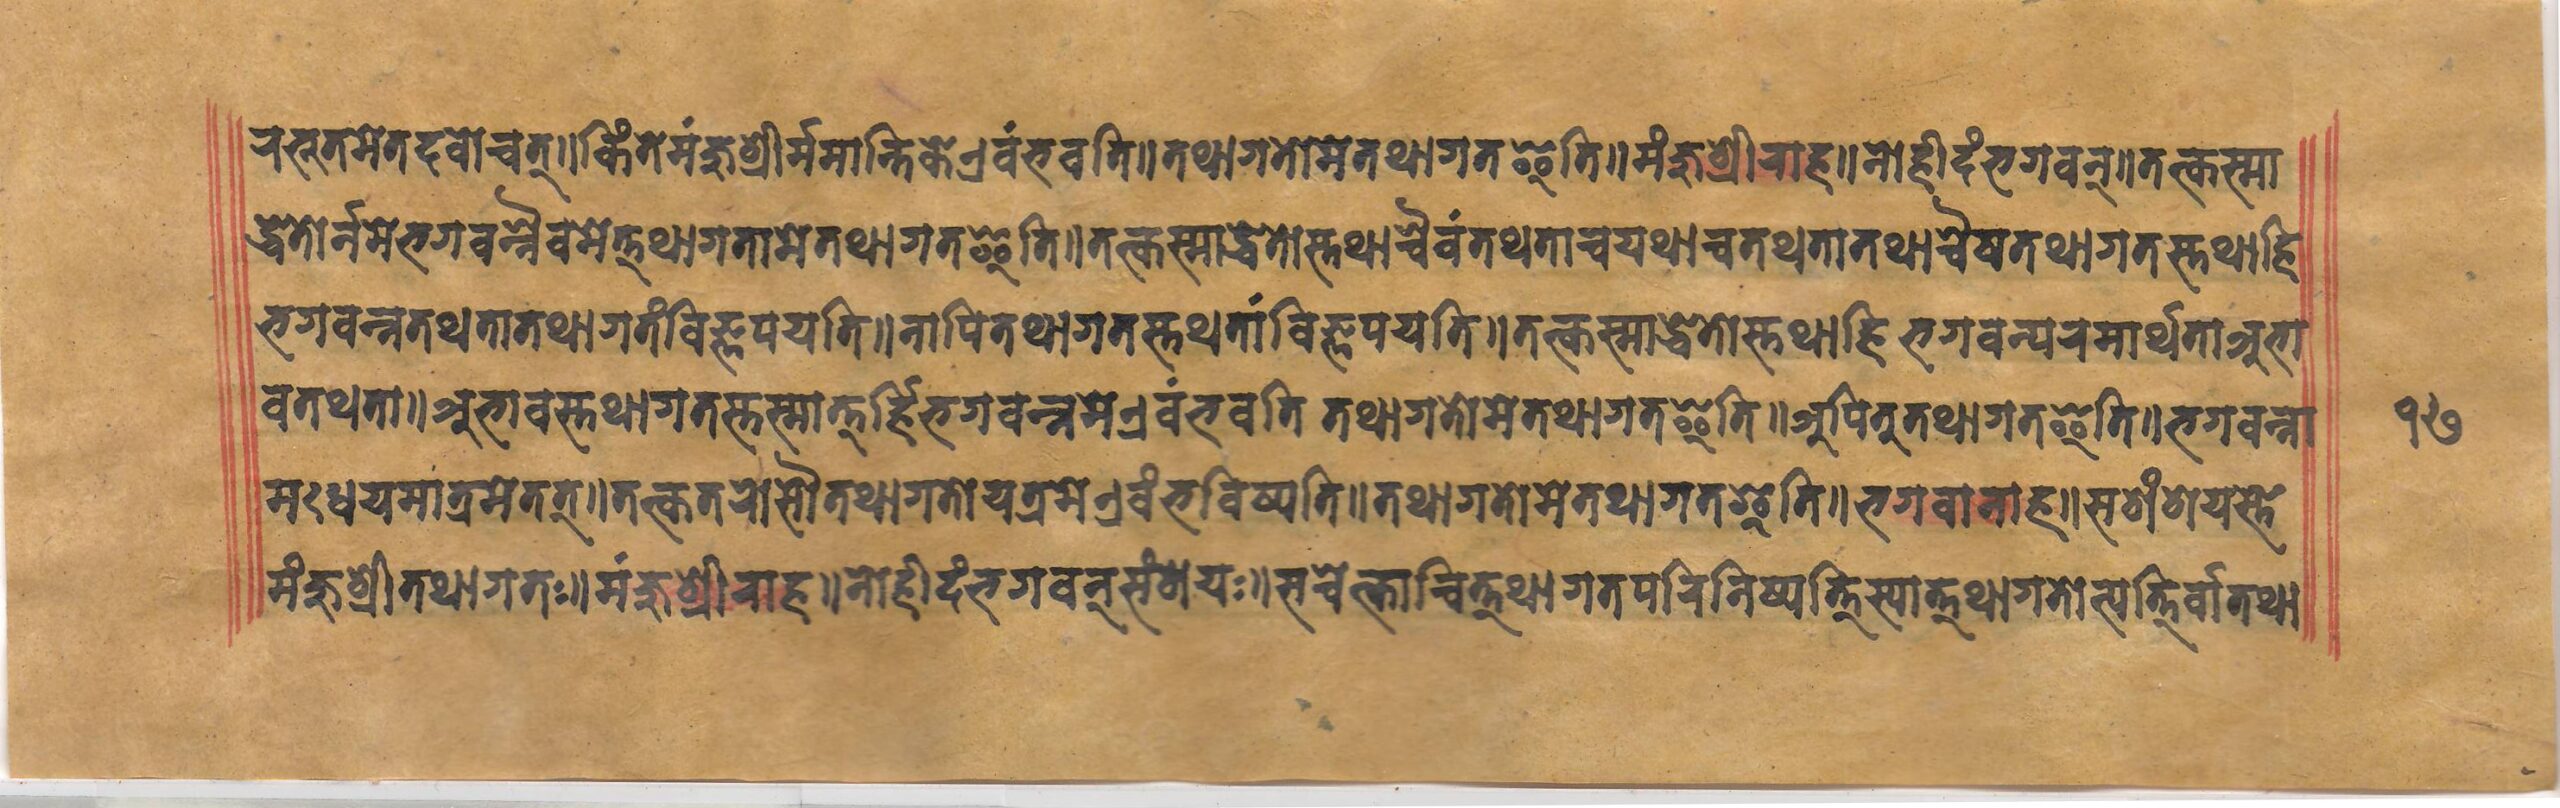 रभूतमेतदवोचत्॥किंतेमंजुश्रीर्ममान्तिकेएवंभवति॥तथागतोमेतथागतइति॥मंजुश्रीराह॥नोहीदंभगवन्॥तत्कस्मा
द्धेतोर्नमेभगवन्नैवमेत्तथागतामेतथागतइति॥तत्कस्माद्धेतोस्तथाचैवंतथताचयथाचतथतातथाचैषतथागतस्तथाहि
भगवन्नतथतातथागतंविज्ञपयति॥नापितथागतस्तथतांविज्ञपयति॥तत्कस्माद्धेतोस्तथाहि भगवन्परमार्थताअभा
वतथता॥अभावस्तथागतस्तस्मात्तर्हिभगवन्नमेएवंभवति तथागतोमेतथागतइति॥अपितुतथागतइति॥भगवन्ना
मधेयमात्रमेतत्॥तत्कतरोसौतथागतोयत्रमेएवंभविष्यति॥तथागतोमेतथागतइति॥भगवानाह॥सशंशयस्ते
मंजुश्रीतथागतः॥मंजुश्रीराह॥नोहीदंभगवन्संशयः॥सचेत्काचित्तथागतपरिनिष्पत्तिस्यात्तथागतोत्पत्तिर्वातथा
१७